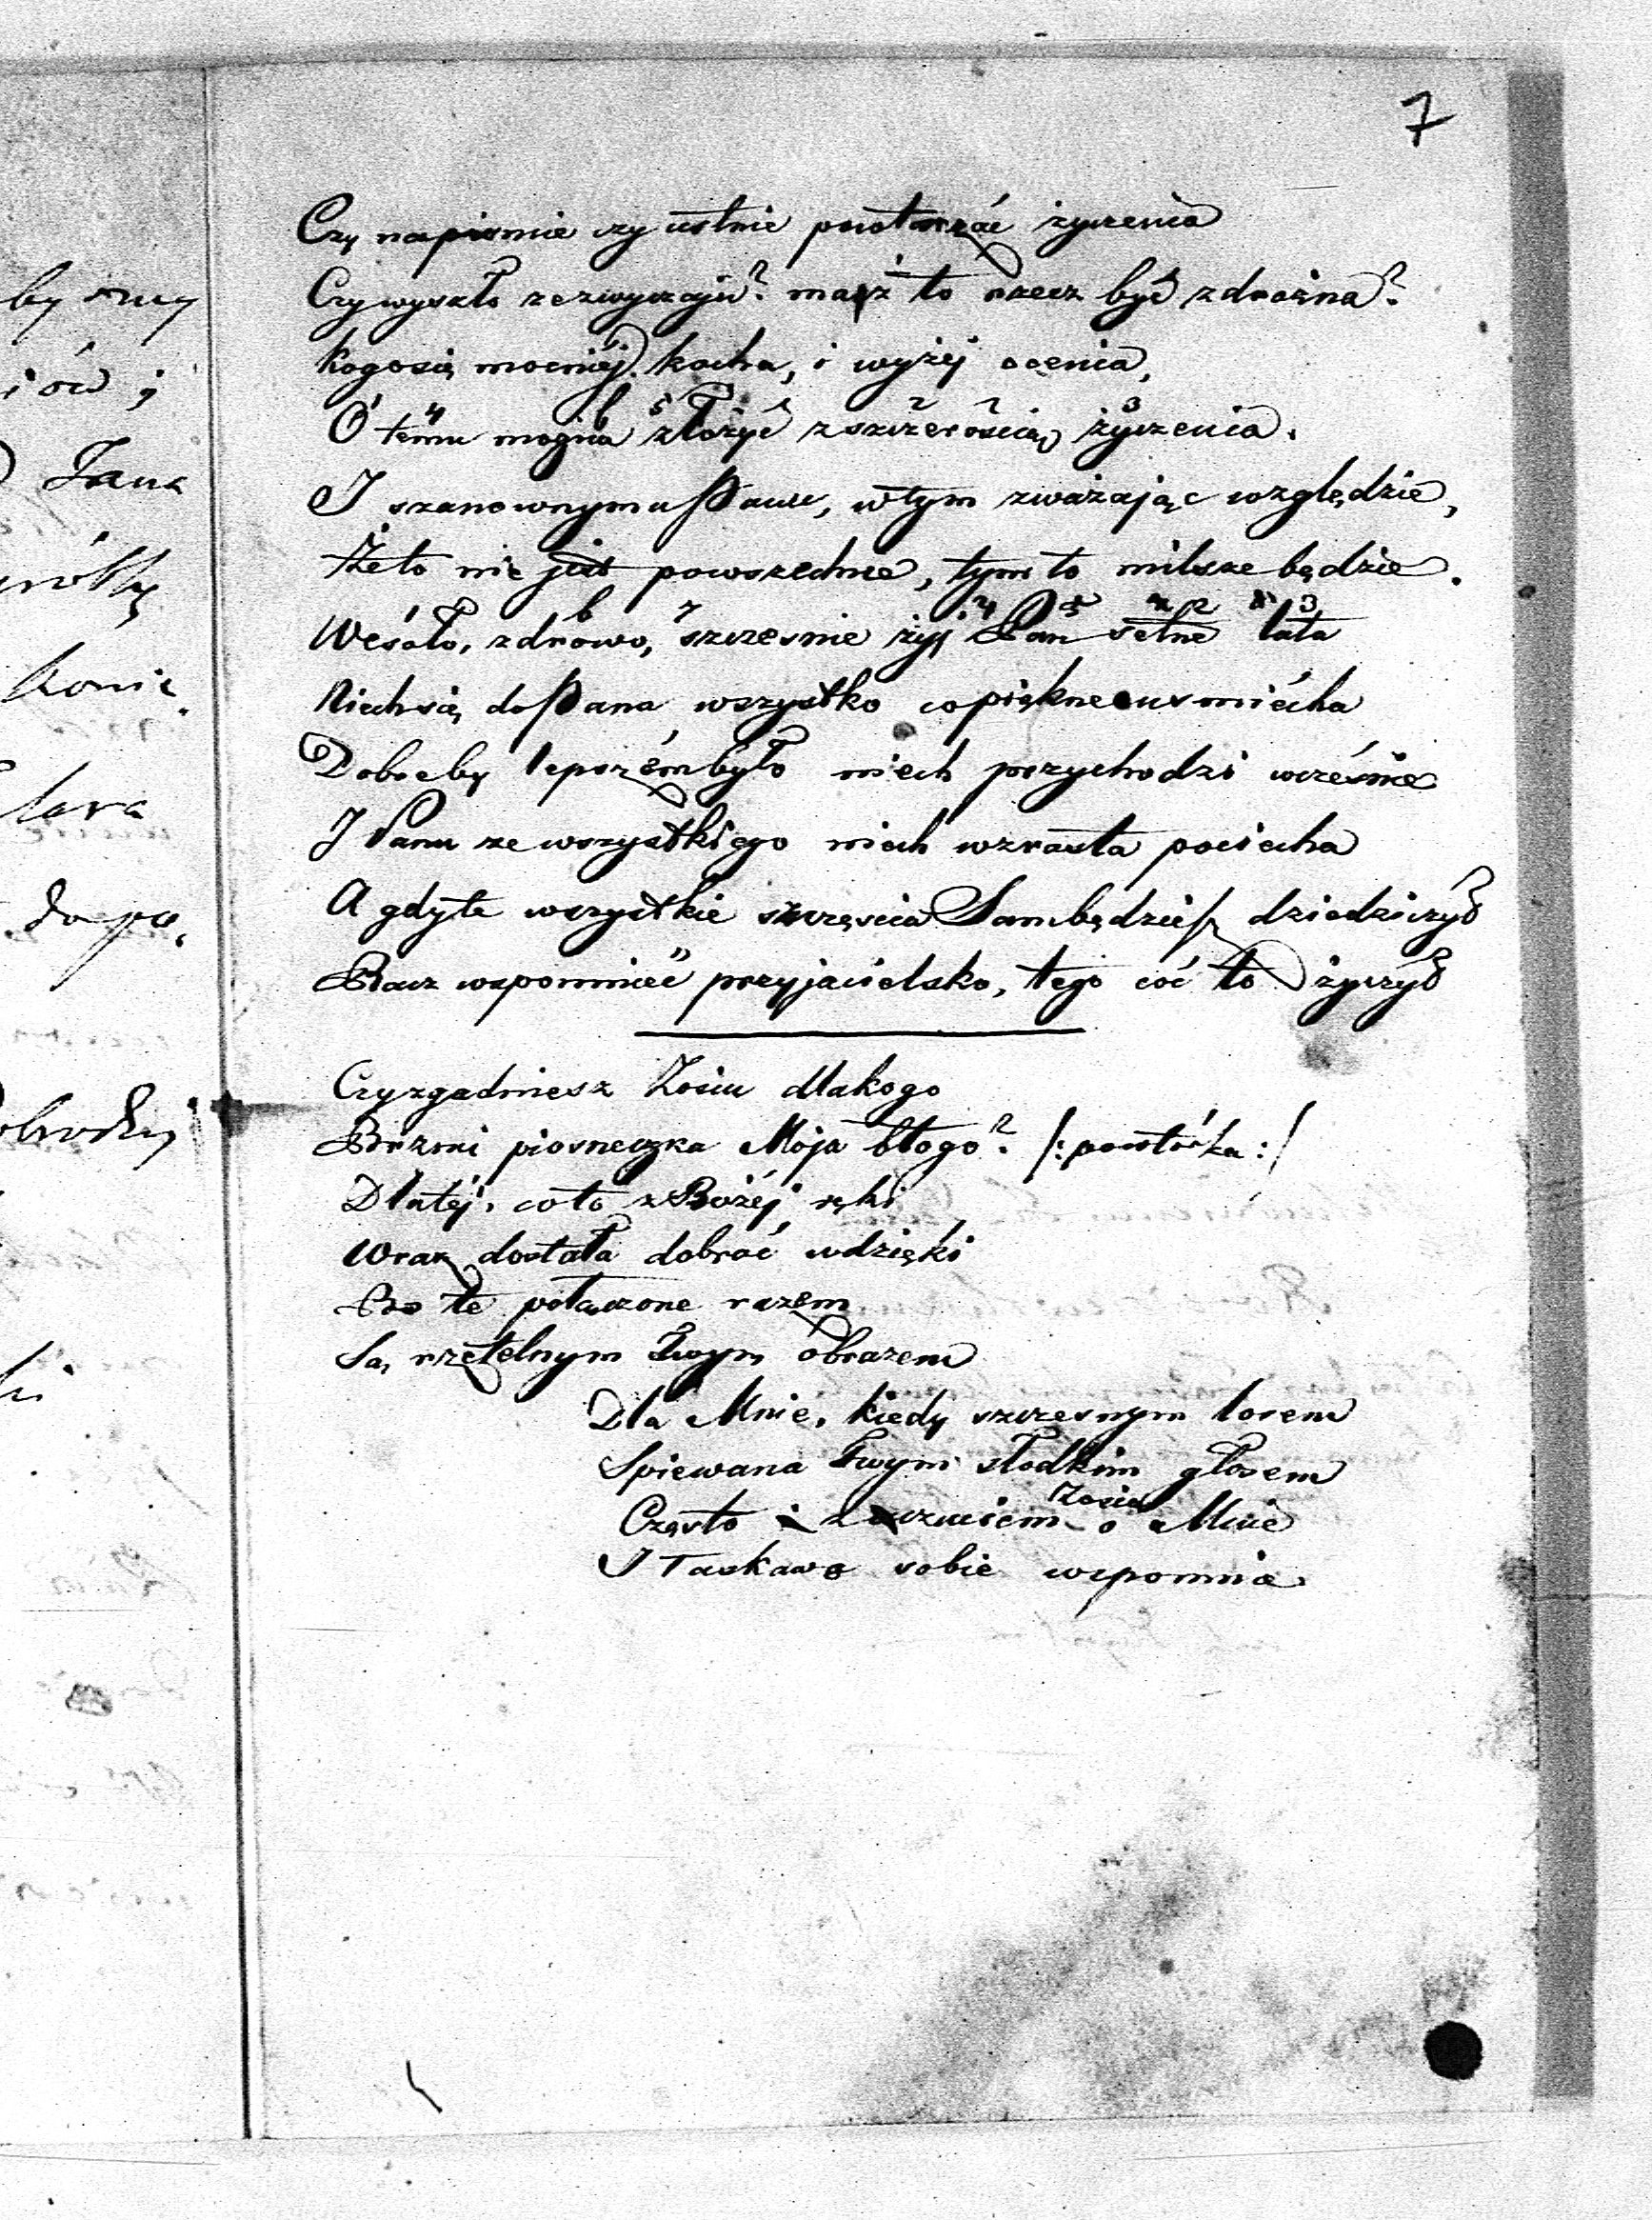 7
Czy napismie czy ustnie powtarzać życzenia
Czy wyszło zezwyczaju? masz to rzecz być zdrożna?
Kogosię mocniéj kocha, i wyżéj ocenia,
O temu można złożyć z szczérością życzenia.
I szanownymu Panu, w tym zważając względzie,
Żeto nie jest powszechne, tym to milsze będzie.
Wesoło, zdrowo, szczesnie żyj Pan setne lata
Niechsię do Pana wszystko co piękne usmiécha
Dobreby lepszém było niech przychodzi wcześnie
I Panu ze wszystkiego niech wzrasta pociecha
A gdyte wszystkie szczęscia Sam będziesz dziedziczył
Racz wspomnieć przyjacielsko, tego coć to życzył
Czyzgadniesz Zosiu dlakogo
Brzmi piosneczka Moja błogo? /: powtórka :/
Dlatéj, coto z Bożéj ręki
Wraz dostała dobroć wdzięki
Bo te połączone razem
Są rzetelnym Twym obrazem
Dla Mnie, kiedy szczesnym losem
Spiewana Twym słodkim głosem
Zosia
Często z uczuciem o Mnie
I Łaskawo sobie wspomnie
by
iów
Jana
Konie